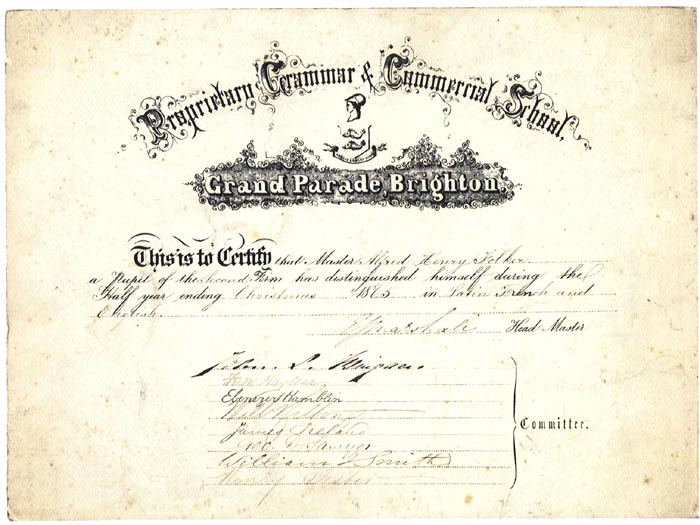 Proprietary Grammar & Commercial School,
Grand Parade, Brighton
This is to Certify that Master Alfred Henry Folker
a Pupil of the Second Form has distinguished himself during the
Half year ending Christmas 1865 in Latin French and
English.
E Marshall Head Master
John
Ebenezer Hamblin
James Ireland
Committee.
William J Smith
Henry